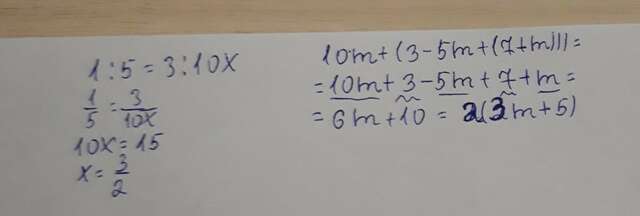 1:5=3:10x
1/5=3/10x
10x=15
x=3/2
10m+(3-5m+(7+m)))=
=10m+3-5m+7+m=
=6m+10=2(3m+5)